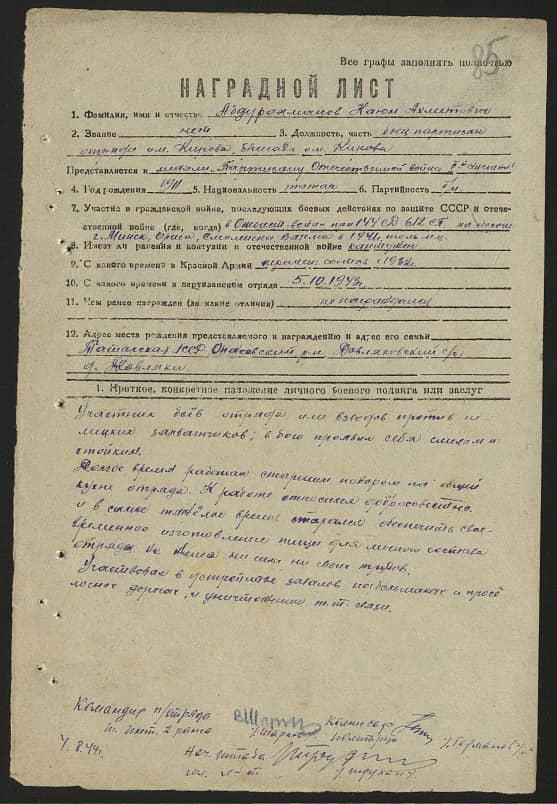 85
Все графы заполнять полностью
НАГРАДНОЙ ЛИСТ
1. Фамилия, имя и отчество Абдурахманов Каюм Ахметович
2. Звание нет 3. Должность, часть боец партизан
отряда им. Кирова, бригада им. Кирова
Представляется к медали „Партизану Отечественной войны" II-й степени
4. Год рождения 1911 5. Национальность татар 6. Партийность б/п
7. Участие в гражданской войне, последующих боевых действиях по защите СССР и отече-
ственной войне (где, когда) в Отечест. войне при 144 СД 612 СП
г. Минск, Орша, Смоленск, Вязьма в 1941
8. Имеет ли ранения и контузии в отечественной войне контужен
9. С какого времени в Красной Армии с 1932
10. С какого времени в партизанском отряде 5.10.1943г.
11. Чем ранее награжден (за какие отличия) не награждался
12. Адрес места рождения представляемого к награждению и адрес его семьи
Татарская АССР
1. Краткое, конкретное изложение личного боевого подвига или заслуг
Участник боёв отряда или взводов против не-
мецких захватчиков; в бою проявил себя смелым и
стойким.
Долгое время работал старшим поваром на общей
кухне отряда. К работе относился добросовестно
и в самое тяжёлое время старался обеспечить свое-
временное изготовление пищи для личного состава
отряда не жалея ни сил ни своих трудов.
Участвовал в устройстве завалов на большаках и просё-
лочных дорогах, и уничтожении т.т. связи.
Командир п/отряда
Комиссар
4.8.44г.
Нач. штаба